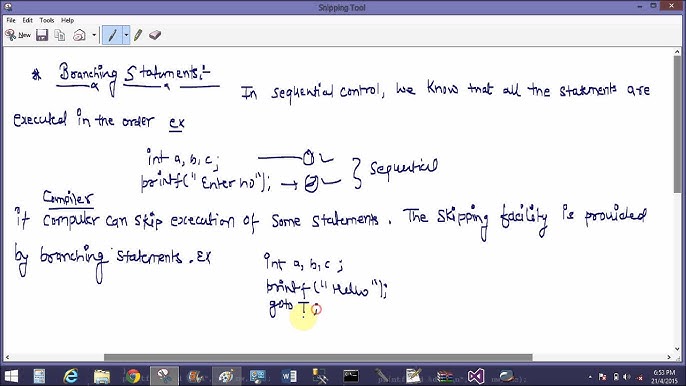 Snipping Tool
File Edit Tools Help
New
* Branching Statements:-
In sequential control, we know that all the statements are
executed in the order ex
int a, b, c; 1
printf("Enter no"); 2 } Sequential
Compiler
it computer can skip execution of some statements. The skipping facility is provided
by branching statements. ex
int a, b, c;
printf("Hello");
goto I;
6:53 PM
21/4/2015